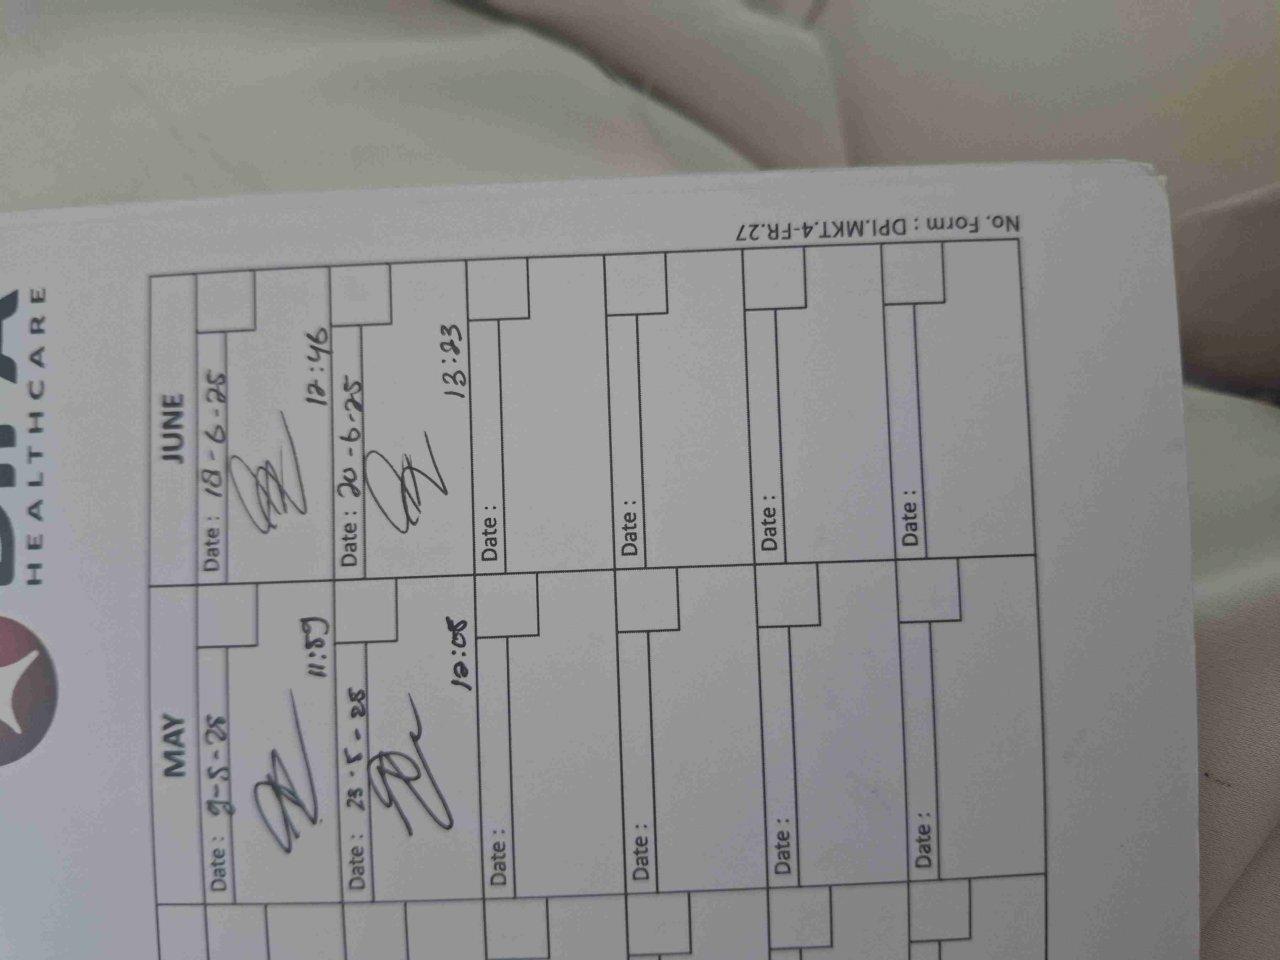 HEALTHCARE
MAY
JUNE
Date : 9-5-25
11:59
Date : 18-6-25
12:46
Date : 23-5-25
12:05
Date : 20-6-25
13:23
Date :
Date :
Date :
Date :
Date :
Date :
Date :
Date :
No. Form : DPI.MKT.4-FR.27